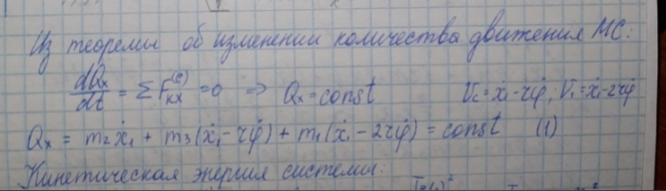 Из теоремы об изменении количества движения МС:
dQx/dt = ΣFkx^(e) = 0 => Qx = const Vc = ẋ₁ - rφ̇; V₁ = ẋ₁ - 2rφ̇
Qx = m₂ẋ₁ + m₃(ẋ₁ - rφ̇) + m₁(ẋ₁ - 2rφ̇) = const (1)
Кинетическая энергия системы: